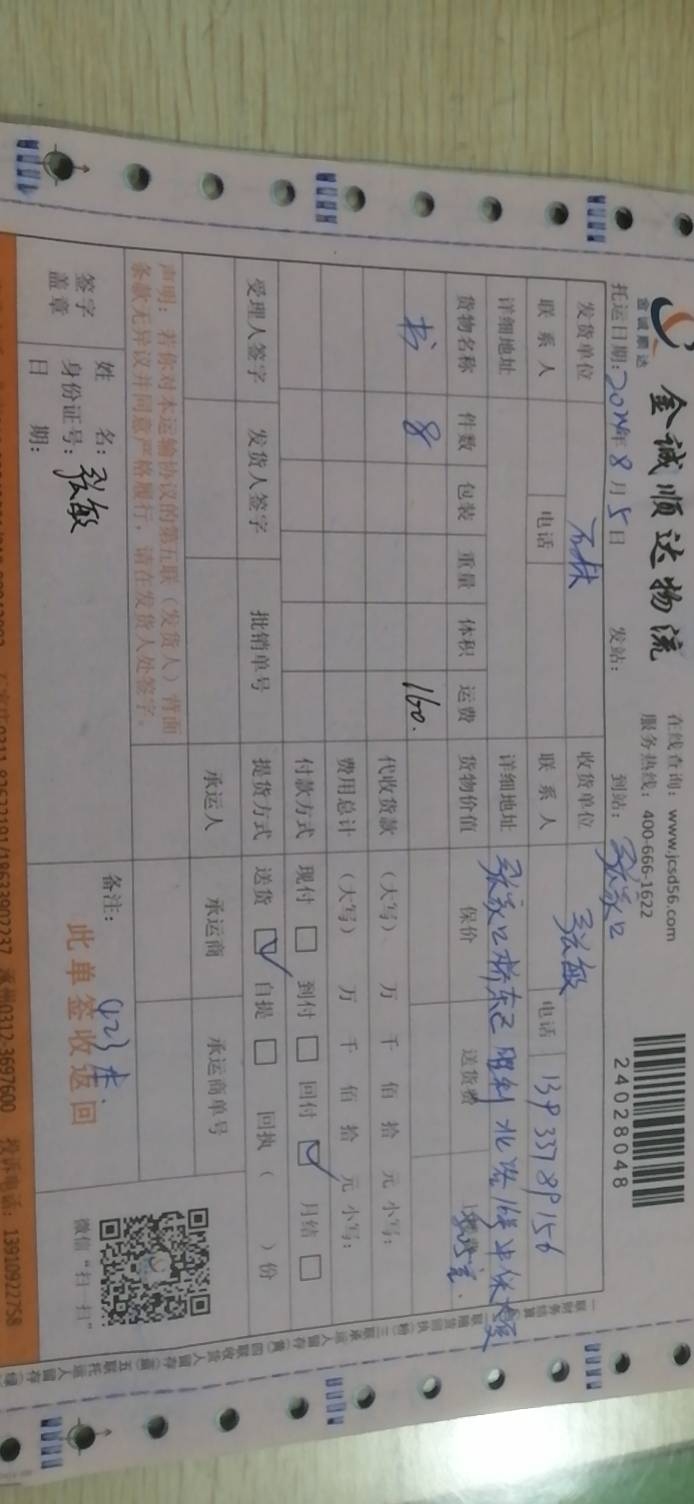 金诚顺达
金诚顺达物流
在线查询: www.jcsd56.com
服务热线: 400-666-1622
24028048
托运日期: 年8月5日 发站: 到站: 张家口
发货单位 收货单位 张敏
联系人 电话 联系人 电话 13933789156
详细地址 详细地址 张家口桥东区胜利北路
货物名称 件数 包装 重量 体积 运费 货物价值 保价 送货费
书 8 160.
代收货款 (大写) 万 千 佰 拾 元 小写:
费用总计 (大写) 万 千 佰 拾 元 小写:
付款方式 现付 到付 回付 月结
受理人签字 发货人签字 批销单号 提货方式 送货 自提 回执( )份
承运人 承运商 承运商单号
声明: 若你对本运输协议的第五联(发货人)背面
条款无异议并同意严格履行, 请在发货人处签字。
签字
盖章
姓 名: 张敏
身份证号:
日 期:
备注:
此单签收返回
微信“扫一扫”
涿州0312-3697600 投诉电话: 13910922758